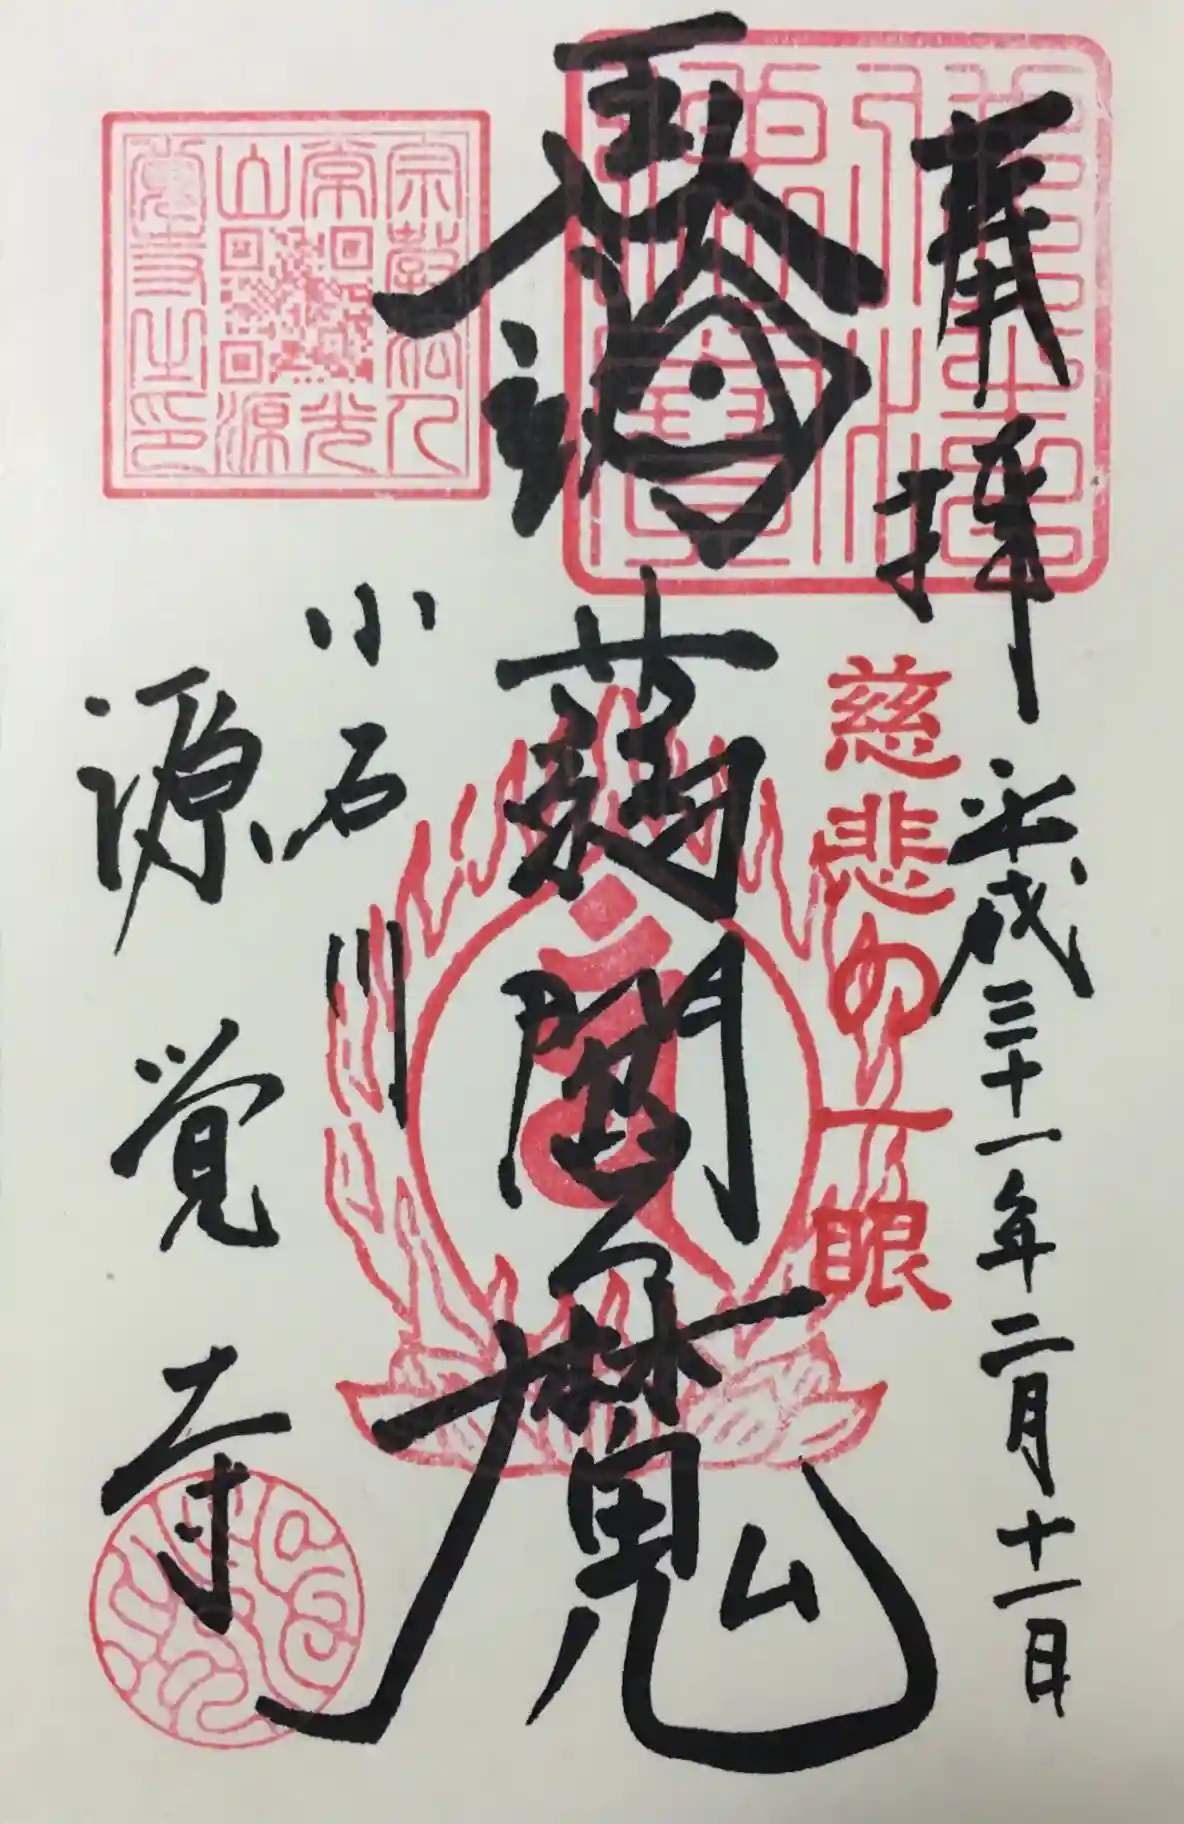 奉拝
平成三十一年二月十一日
慈悲の一眼
閻魔
小石川
源覚寺
宗教法人
常光
山源
覺寺之印